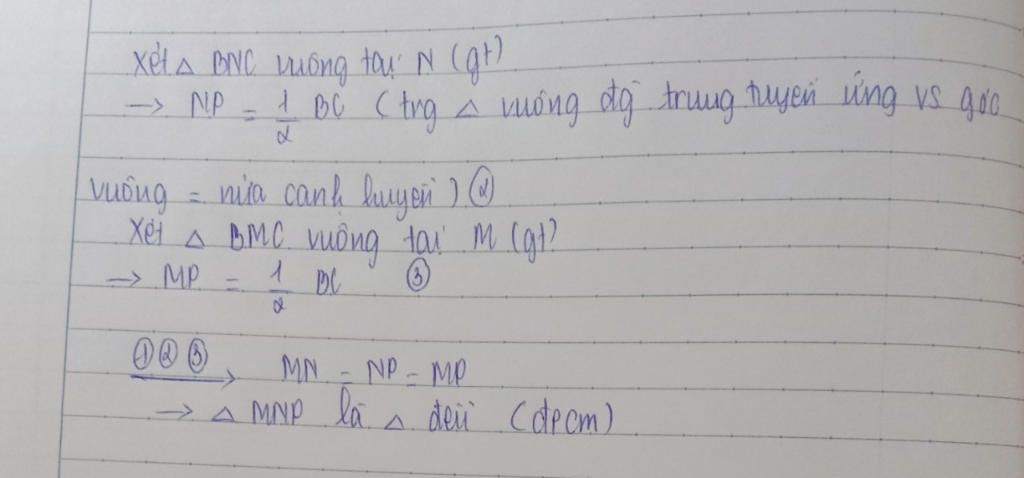 Xét △ BNC vuông tại N (gt)
→ NP = 1/2 BC (trg △ vuông đg trung tuyến ứng vs góc
vuông = nửa cạnh huyền) ②
Xét △ BMC vuông tại M (gt)
→ MP = 1/2 BC ③
①②③ → MN = NP = MP
→ △ MNP là △ đều (đpcm)